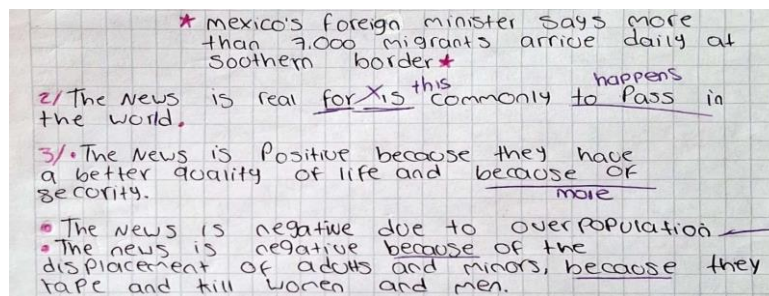 * mexico's foreign minister says more
than 7.000 migrants arrive daily at
southern border *
2/ The News is real for X is this commonly to Pass happens in
the world.
3/. The News is Positive because they have
a better quality of life and because OF
security. more
• The News is negative due to overpopulation
• The news is negative because of the
displacement of adults and minors, because they
rape and kill women and men.